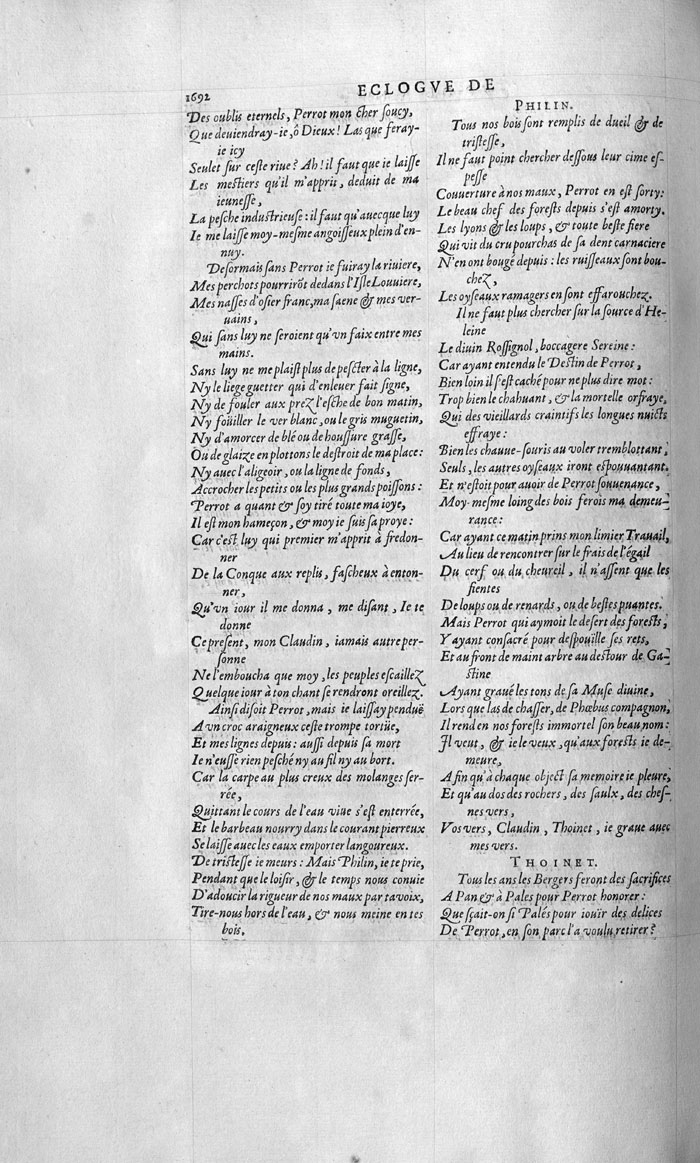 1692
ECLOGVE DE
Des oublis eternels, Perrot mon cher soucy,
Que deuiendray-ie, ô Dieux! Las que feray-
ie icy
Seulet sur ceste riue? Ah! il faut que ie laisse
Les mestiers qu'il m'apprit, deduit de ma
ieunesse,
La pesche industrieuse: il faut qu'auecque luy
Ie me laisse moy-mesme angoisseux plein d'en-
nuy.
Desormais sans Perrot ie fuiray la riuiere,
Mes perchots pourrirõt dedans l'Isle Louuiere,
Mes nasses d'osier franc, ma saene & mes ver-
uains,
Qui sans luy ne seroient qu'vn faix entre mes
mains.
Sans luy ne me plaist plus de pescter à la ligne,
Ny le liege guetter qui d'enleuer fait signe,
Ny de fouler aux prez l'esche de bon matin,
Ny foüiller le ver blanc, ou le gris muguetin,
Ny d'amorcer de blé ou de houssure grasse,
Ou de glaize en plottons le destroit de ma place:
Ny auec l'aligeoir, ou la ligne de fonds,
Accrocher les petits ou les plus grands poissons:
Perrot a quant & soy tiré toute ma ioye,
Il est mon hameçon, & moy ie suis sa proye:
Car c'est luy qui premier m'apprit à fredon-
ner
De la Conque aux replis, fascheux à enton-
ner,
Qu'vn iour il me donna, me disant, Ie te
donne
Ce present, mon Claudin, iamais autre per-
sonne
Ne l'emboucha que moy, les peuples escaillez
Quelque iour à ton chant se rendront oreillez.
Ainsi disoit Perrot, mais ie laissay penduë
A vn croc araigneux ceste trompe tortüe,
Et mes lignes depuis: aussi depuis sa mort
Ie n'eusse rien pesché ny au fil ny au bort.
Car la carpe au plus creux des molanges ser-
rée,
Quittant le cours de l'eau viue s'est enterrée,
Et le barbeau nourry dans le courant pierreux
Se laisse auec les eaux emporter langoureux.
De tristesse ie meurs: Mais Philin, ie te prie,
Pendant que le loisir, & le temps nous conuie
D'adoucir la rigueur de nos maux par ta voix,
Tire-nous hors de l'eau, & nous meine en tes
bois.
PHILIN.
Tous nos bois sont remplis de dueil & de
tristesse,
Il ne faut point chercher dessous leur cime es-
pesse
Couuerture à nos maux, Perrot en est sorty:
Le beau chef des forests depuis s'est amorty.
Les lyons & les loups, & toute beste fiere
Qui vit du cru pourchas de sa dent carnaciere
N'en ont bougé depuis: les ruisseaux sont bou-
chez,
Les oyseaux ramagers en sont effarouchez.
Il ne faut plus chercher sur la source d'He-
leine
Le diuin Rossignol, boccagere Sereine:
Car ayant entendu le Destin de Perrot,
Bien loin il s'est caché pour ne plus dire mot:
Trop bien le chahuant, & la mortelle orfraye,
Qui des vieillards craintifs les longues nuicts
effraye:
Bien les chauue-souris au voler tremblottant,
Seuls, les autres oyseaux iront espouuantant.
Et n'estoit pour auoir de Perrot souuenance,
Moy-mesme loing des bois ferois ma demeu-
rance:
Car ayant ce matin prins mon limier Trauail,
Au lieu de rencontrer sur le frais de l'égail
Du cerf ou du cheureil, il n'assent que les
fientes
De loups ou de renards, ou de bestes puantes.
Mais Perrot qui aymoit le desert des forests,
Y ayant consacré pour despouille ses rets,
Et au front de maint arbre au destour de Ga-
stine
Ayant graué les tons de sa Muse diuine,
Lors que las de chasser, de Phœbus compagnon,
Il rend en nos forests immortel son beau nom:
Il veut, & ie le veux, qu'aux forests ie de-
meure,
A fin qu'à chaque obiect sa memoire ie pleure,
Et qu'au dos des rochers, des saulx, des ches-
nes vers,
Vos vers, Claudin, Thoinet, ie graue auec
mes vers.
THOINET.
Tous les ans les Bergers feront des sacrifices
A Pan & à Pales pour Perrot honorer:
Que sçait-on si Palés pour ioüir des delices
De Perrot, en son parc l'a voulu retirer?